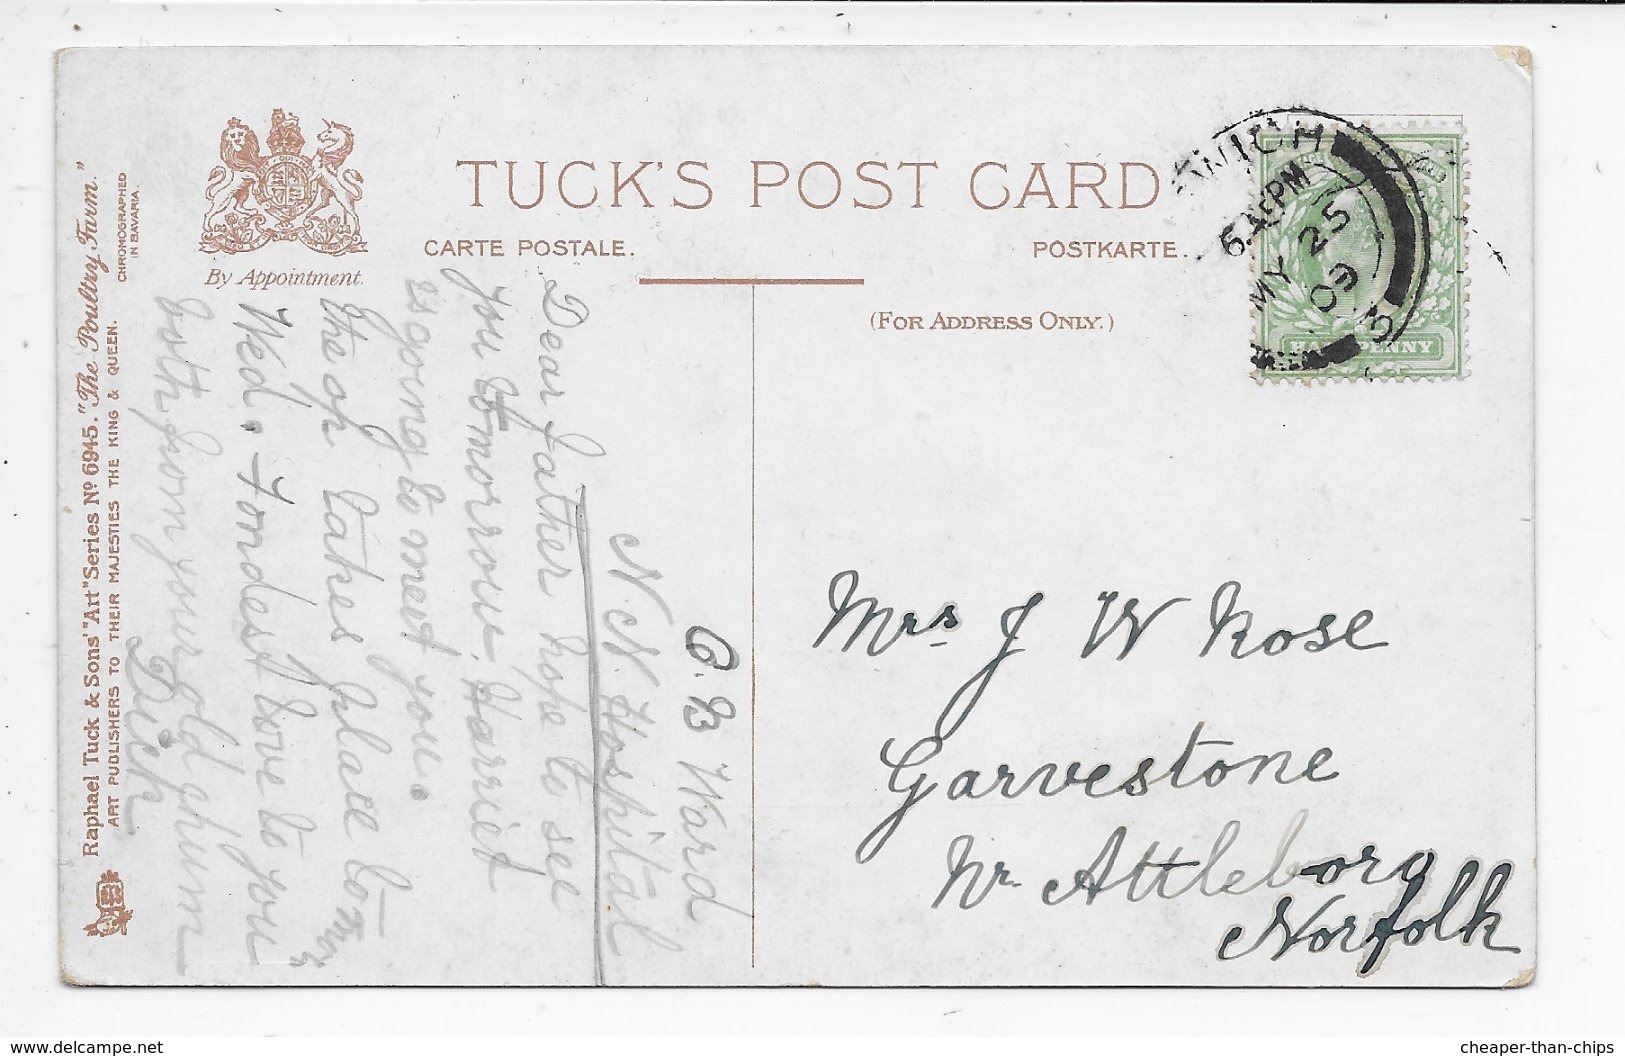 TUCK'S POST CARD
CARTE POSTALE.
POSTKARTE.
(FOR ADDRESS ONLY.)
By Appointment.
Raphael Tuck & Sons' "Art" Series Nº 6945. "The Poultry Farm."
ART PUBLISHERS TO THEIR MAJESTIES THE KING & QUEEN.
CHROMOGRAPHED
IN BAVARIA
WICH
PM
MY 25
09
HALFPENNY
Ward
N.N. Hospital
Dear father hope to see
you tomorrow. Harriet
is going to meet you.
the op takes place tomg
Wed. Fondest love to you
both from your old chum
Dick
Mrs J W Rose
Garvestone
Nr. Attleboro
Norfolk
www.delcampe.net
cheaper-than-chips